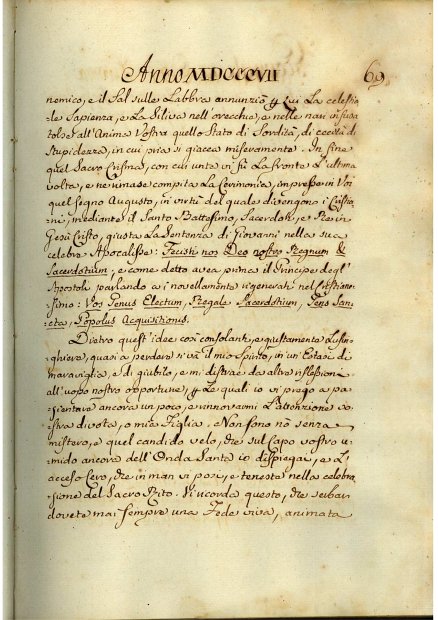 Anno MDCCCVII
69
nemico, e il Sal sulle Labbra annunziò qui La celestia-
le Sapienza, e La Siliva nell'orecchie, e nelle nari infusa
tolse all'Anima Vostra quello Stato di Sordità, di cecità, di
Stupidezza, in cui pria si giacea miseramente. In fine
quel Sacro Crisma, con cui unta vi fù La fronte L'ultima
volta, e ne rimase compita La Cerimonia, impresse in Voi
quel segno Augusto, in virtù del quale divengono i Cristia-
ni, mediante il Santo Battesimo, Sacerdoti, e Re in
Gesù Cristo, giusta La Sentenza di Giovanni nella sua
celebre Apocalisse: Fecisti nos Deo nostro Regnum &
Sacerdotium, e come detto avea prima il Principe degl'
Apostoli parlando a i novellamente rigenerati nel Cristiane-
simo: Vos Genus Electum, Regale Sacerdotium, Gens San-
cta, Populus Acquisitionis.
Dietro quest'idee così consolanti, e giustamente Lusin-
ghiere, quasi a perdersi và il mio Spirito, in un'Estasi di
maraviglia, e di giubilo, e mi distrae da altre riflessioni
all'uopo nostro opportune, Le quali io vi prego a pa-
zientare ancora un poco, e rinnovarmi L'attenzione vo-
stra divota, o mia Figlia. Non fono nò senza
mistero, e quel candido velo, che sul Capo vostro u-
mido ancora dell'Onda Santa io dispiegai, e L'
acceso Cero, che in man vi posi, e teneste nella celebra-
zione del Sacro Rito. Vi ricorda questo, che serbar
dovete mai sempre una Fede viva, animata